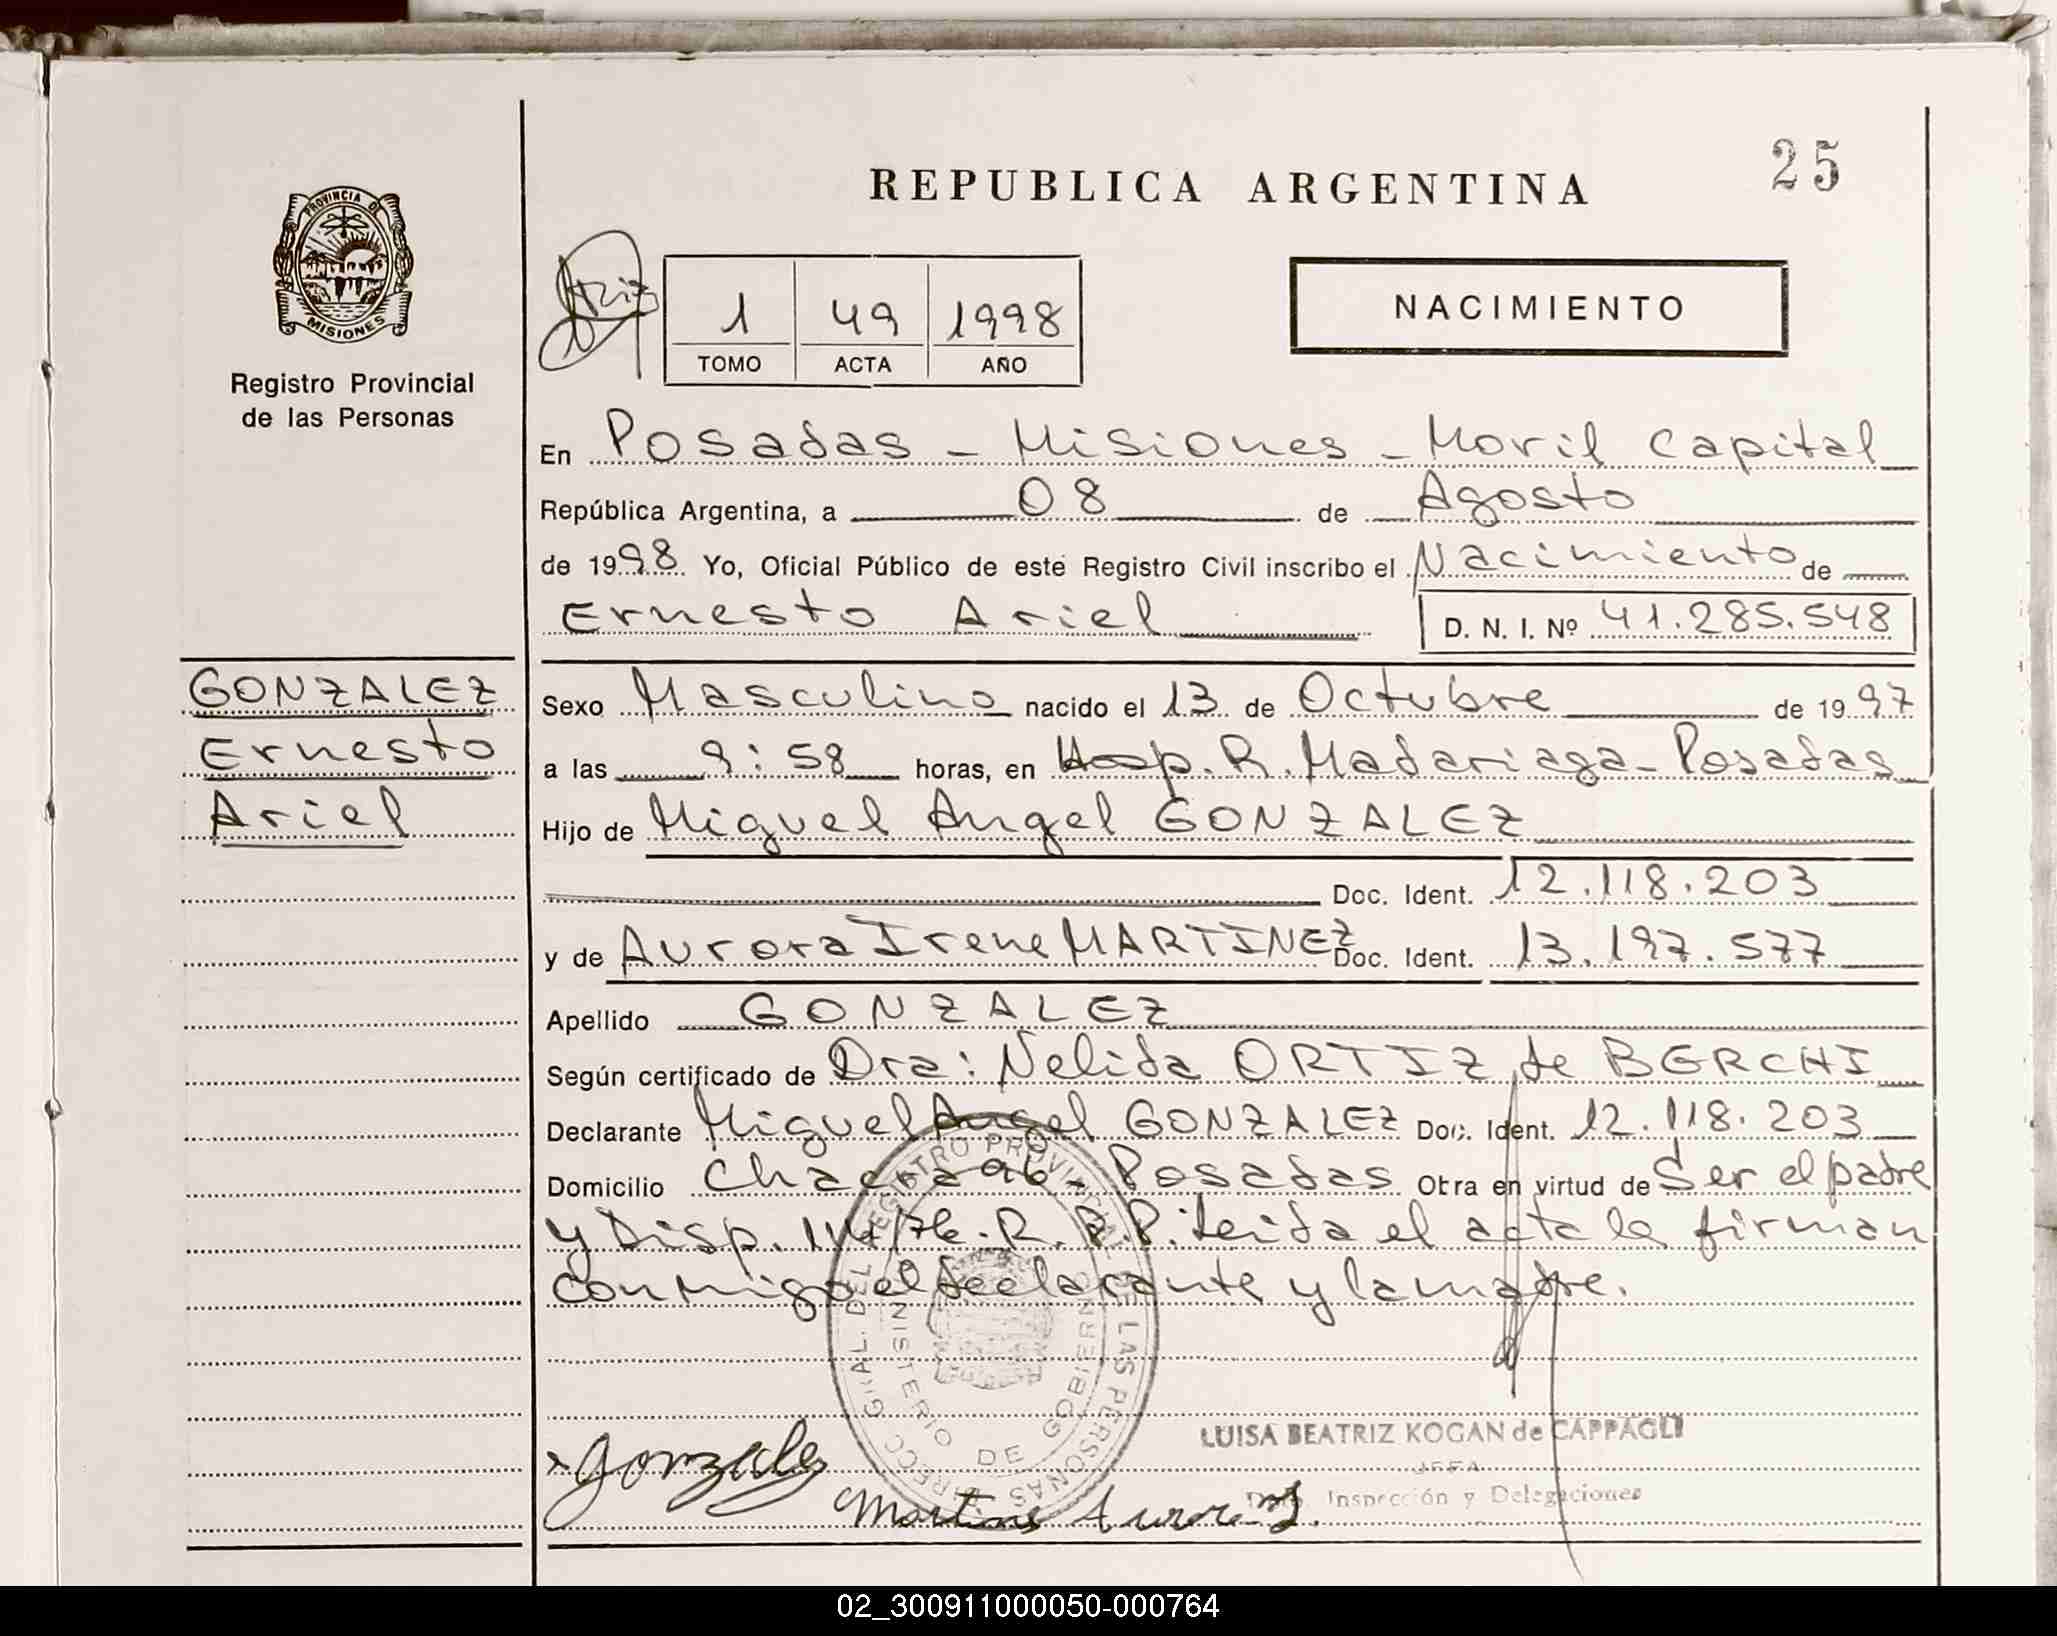 25
REPUBLICA ARGENTINA
PROVINCIA DE
MISIONES
Registro Provincial
de las Personas
1 49 1998
TOMO ACTA AÑO
NACIMIENTO
En Posadas - Misiones - Movil Capital
República Argentina, a 08 de Agosto
de 1998 Yo, Oficial Público de este Registro Civil inscribo el Nacimiento de
Ernesto Ariel D. N. I. Nº 41.285.548
GONZALEZ
Ernesto
Ariel
Sexo Masculino nacido el 13 de Octubre de 1997
a las 9:58 horas, en Hosp. R. Madariaga - Posadas
Hijo de Miguel Angel GONZALEZ
Doc. Ident. 12.118.203
y de Aurora Irene MARTINEZ Doc. Ident. 13.197.577
Apellido GONZALEZ
Según certificado de Dra: Nelida ORTIZ de BERCHI
Declarante Miguel Angel GONZALEZ Doc. Ident. 12.118.203
Domicilio Chacra 96 - Posadas Otra en virtud de Ser el padre
y Disp. R. P. P. Leida el acta la firman
conmigo el declarante y la madre.
DIRECC. GRAL. DEL REGISTRO PROVINCIAL DE LAS PERSONAS
MINISTERIO DE GOBIERNO
LUISA BEATRIZ KOGAN de CAPPAGLI
JEFA
Dpto. Inspección y Delegaciones
Gonzalez
02_300911000050-000764